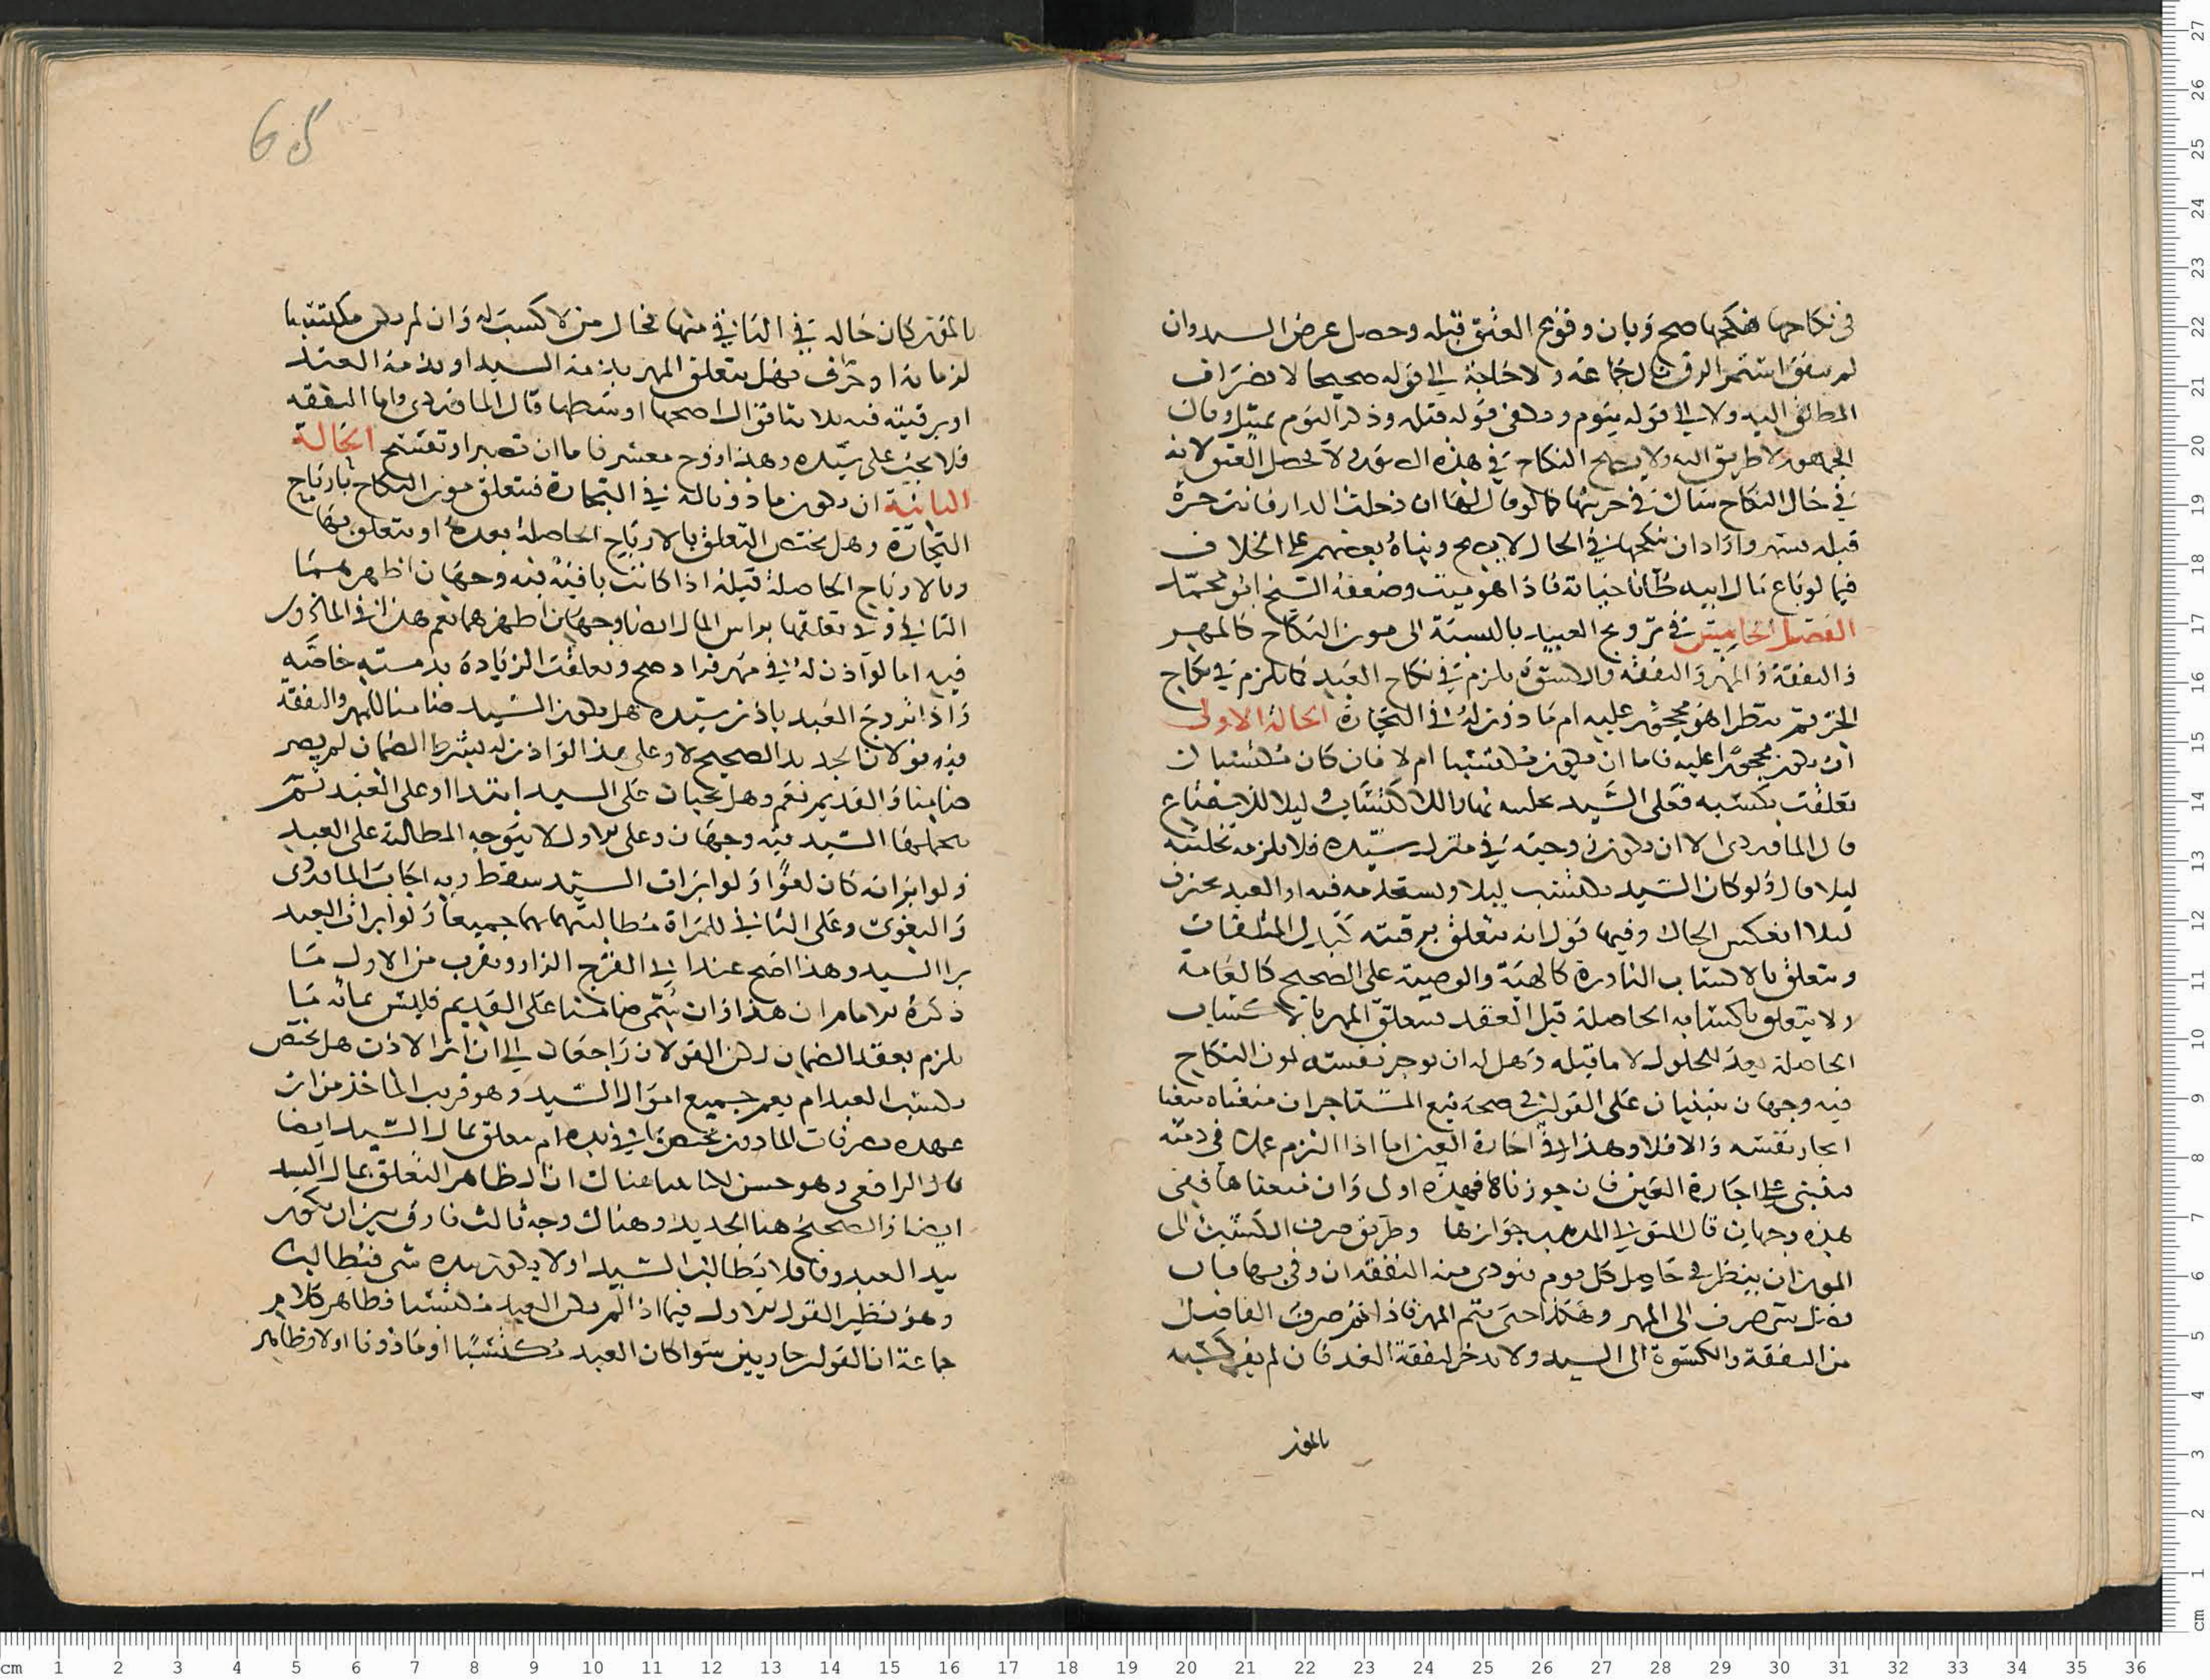 في نكاحها فنكحها صح وبان وقوع العتق قبله وحصل غرض السيد وان
لم يتفق استمر الرق قال جماعة ولا حاجة الى قوله صحيحا لانصراف
المطلق اليه ولا الى قوله بيوم ويكفي قوله قبله وذكر اليوم تمثيل وقال
الجمهور لا طريق اليه ولا يصح النكاح في هذه الصورة ولا يحصل العتق لانه
في حال النكاح شاك في حريتها كما لو قال لها ان دخلت الدار فانت حرة
قبله بشهر واراد ان ينكحها في الحال لا يصح وبناه بعضهم على الخلاف
فيما لو باع مال ابيه ظانا حياته فاذا هو ميت وضعفه الشيخ ابو محمد
الفصل الخامس في تزويج العبيد بالنسبة الى مون النكاح كالمهر
والنفقة والمهر والنفقة والكسوة يلزم في نكاح العبد كما يلزم في نكاح
الحر ثم ينظر اهو محجور عليه ام ماذون له في التجارة الحالة الاولى
ان يكون محجورا عليه فاما ان يكون مكتسبا ام لا فان كان مكتسبا
تعلقت بكسبه فعلى السيد تخليته نهارا للاكتساب وليلا للاستمتاع
قال الماوردي الا ان يكون زوجته في منزل سيده فلا يلزمه تخليته
ليلا قال ولو كان السيد يكتسب ليلا ويستخدمه فيه او العبد يحترف
ليلا انعكس الحال وفيها قول انه يتعلق برقبته كبدل المتلفات
ويتعلق بالاكساب النادرة كالهبة والوصية على الصحيح كالعامة
ولا يتعلق باكسابه الحاصلة قبل العقد فيتعلق المهر بالاكساب
الحاصلة بعد الحلول لا ما قبله وهل له ان يوجر نفسه لمون النكاح
فيه وجهان مبنيان على القولين في صحة بيع المستاجر ان منعناه منعنا
ايجار نفسه والا فلا وهذا في اجارة العين اما اذا التزم عملا في ذمته
فينبني على اجارة العين فان جوزناه فهذه اولى وان منعناها ففي
هذه وجهان قال المتولي المذهب جوازها وطريق صرف الكسب الى
المون ان ينظر في حاصل كل يوم فيودي منه النفقة ان وفى بها فان
فضل شي صرف الى المهر وهكذا حتى يتم المهر فاذا تم صرف الفاضل
من النفقة والكسوة الى السيد ولا يدخر لنفقة الغد فان لم يف كسبه
بالمون
65
بالمون كان حاله في الثاني منها كحال من لا كسب له وان لم يكن مكتسبا
لزمانة او خرف فهل يتعلق المهر بذمة السيد او بذمة العبد
او برقبته فيه ثلاثة اقوال اصحها اوسطها قال الماوردي واما النفقة
فلا تجب على سيده وهذا زوج معسر فاما ان تصبر او تفسخ الحالة
الثانية ان يكون ماذونا له في التجارة فتتعلق مون النكاح بارباح
التجارة وهل يختص التعلق بالارباح الحاصلة بعده او يتعلق بها
وبالارباح الحاصلة قبله اذا كانت باقية فيه وجهان اظهرهما
الثاني وفي تعلقها براس المال ايضا وجهان اظهرهما نعم هذا في الماذون
فيه اما لو اذن له في مهر فزاد صح وتعلقت الزيادة بذمته خاصة
واذا تزوج العبد باذن سيده هل يكون السيد ضامنا للمهر والنفقة
فيه قولان الجديد الصحيح لا وعلى هذا لو اذن له بشرط الضمان لم يصر
ضامنا والقديم نعم وهل يجبان على السيد ابتدا او على العبد ثم
يحملها السيد فيه وجهان وعلى الاول لا يتوجه المطالبة على العبد
ولو ابراته كان لغوا ولو ابرات السيد سقط وبه اجاب الماوردي
والبغوي وعلى الثاني للمراة مطالبتهما بهما جميعا ولو ابرات العبد
برا السيد وهذا اصح عند ابي الفرج الزاز ويقرب من الاول ما
ذكره الامام ان هذا وان سمي ضامنا على القديم فليس بمثابة ما
يلزم بعقد الضمان لكن القولان راجعان الى ان اثر الاذن هل يختص
بكسب العبد ام يعم جميع اموال السيد وهو قريب الماخذ من ان
عهدة تصرفات الماذون يختص بما في يده ام يتعلق بمال السيد ايضا
قال الرافعي وهو حسن لكنا بينا هناك ان الظاهر التعلق بمال السيد
ايضا والصحيح هنا الجديد وهناك وجه ثالث فارق بين ان يكون
بيد العبد وفا فلا يطالب السيد او لا يكون بيده شي فيطالب
وهو نظير القول الاول فيما اذا لم يكن العبد مكتسبا فظاهر كلام
جماعة ان القولين جاريين سوا كان العبد مكتسبا او ماذونا او لا وظاهر